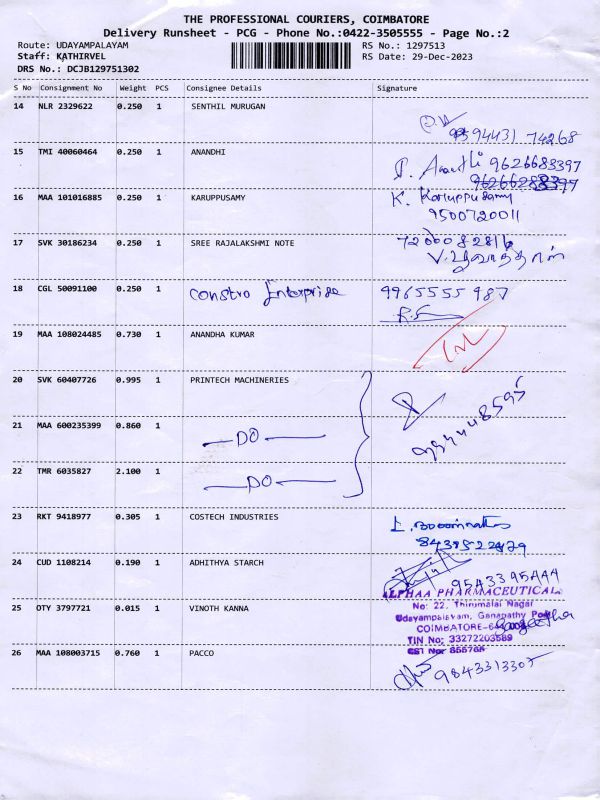 THE PROFESSIONAL COURIERS, COIMBATORE
Delivery Runsheet - PCG - Phone No.:0422-3505555 - Page No.:2
Route: UDAYAMPALAYAM RS No.: 1297513
Staff: KATHIRVEL RS Date: 29-Dec-2023
DRS No.: DCJB129751302
S No Consignment No Weight PCS Consignee Details Signature
14 NLR 2329622 0.250 1 SENTHIL MURUGAN
94431 74268
15 TMI 40060464 0.250 1 ANANDHI 9626683397
16 MAA 101016885 0.250 1 KARUPPUSAMY K. Karuppusamy
9500720011
17 SVK 30186234 0.250 1 SREE RAJALAKSHMI NOTE
18 CGL 50091100 0.250 1 Constro Enterprise 9965555 987
19 MAA 108024485 0.730 1 ANANDHA KUMAR
20 SVK 60407726 0.995 1 PRINTECH MACHINERIES
21 MAA 600235399 0.860 1 —DO—
22 TMR 6035827 2.100 1 —DO—
23 RKT 9418977 0.305 1 COSTECH INDUSTRIES
24 CUD 1108214 0.190 1 ADHITHYA STARCH
9543395444
ALPHAA PHARMACEUTICALS
25 OTY 3797721 0.015 1 VINOTH KANNA No: 22. Thirumalai Nagar
Udayampalayam, Ganapathy Post
COIMBATORE-6 Sangeetha
TIN No: 33272203589
CST No: 855768
26 MAA 108003715 0.760 1 PACCO
9843313305